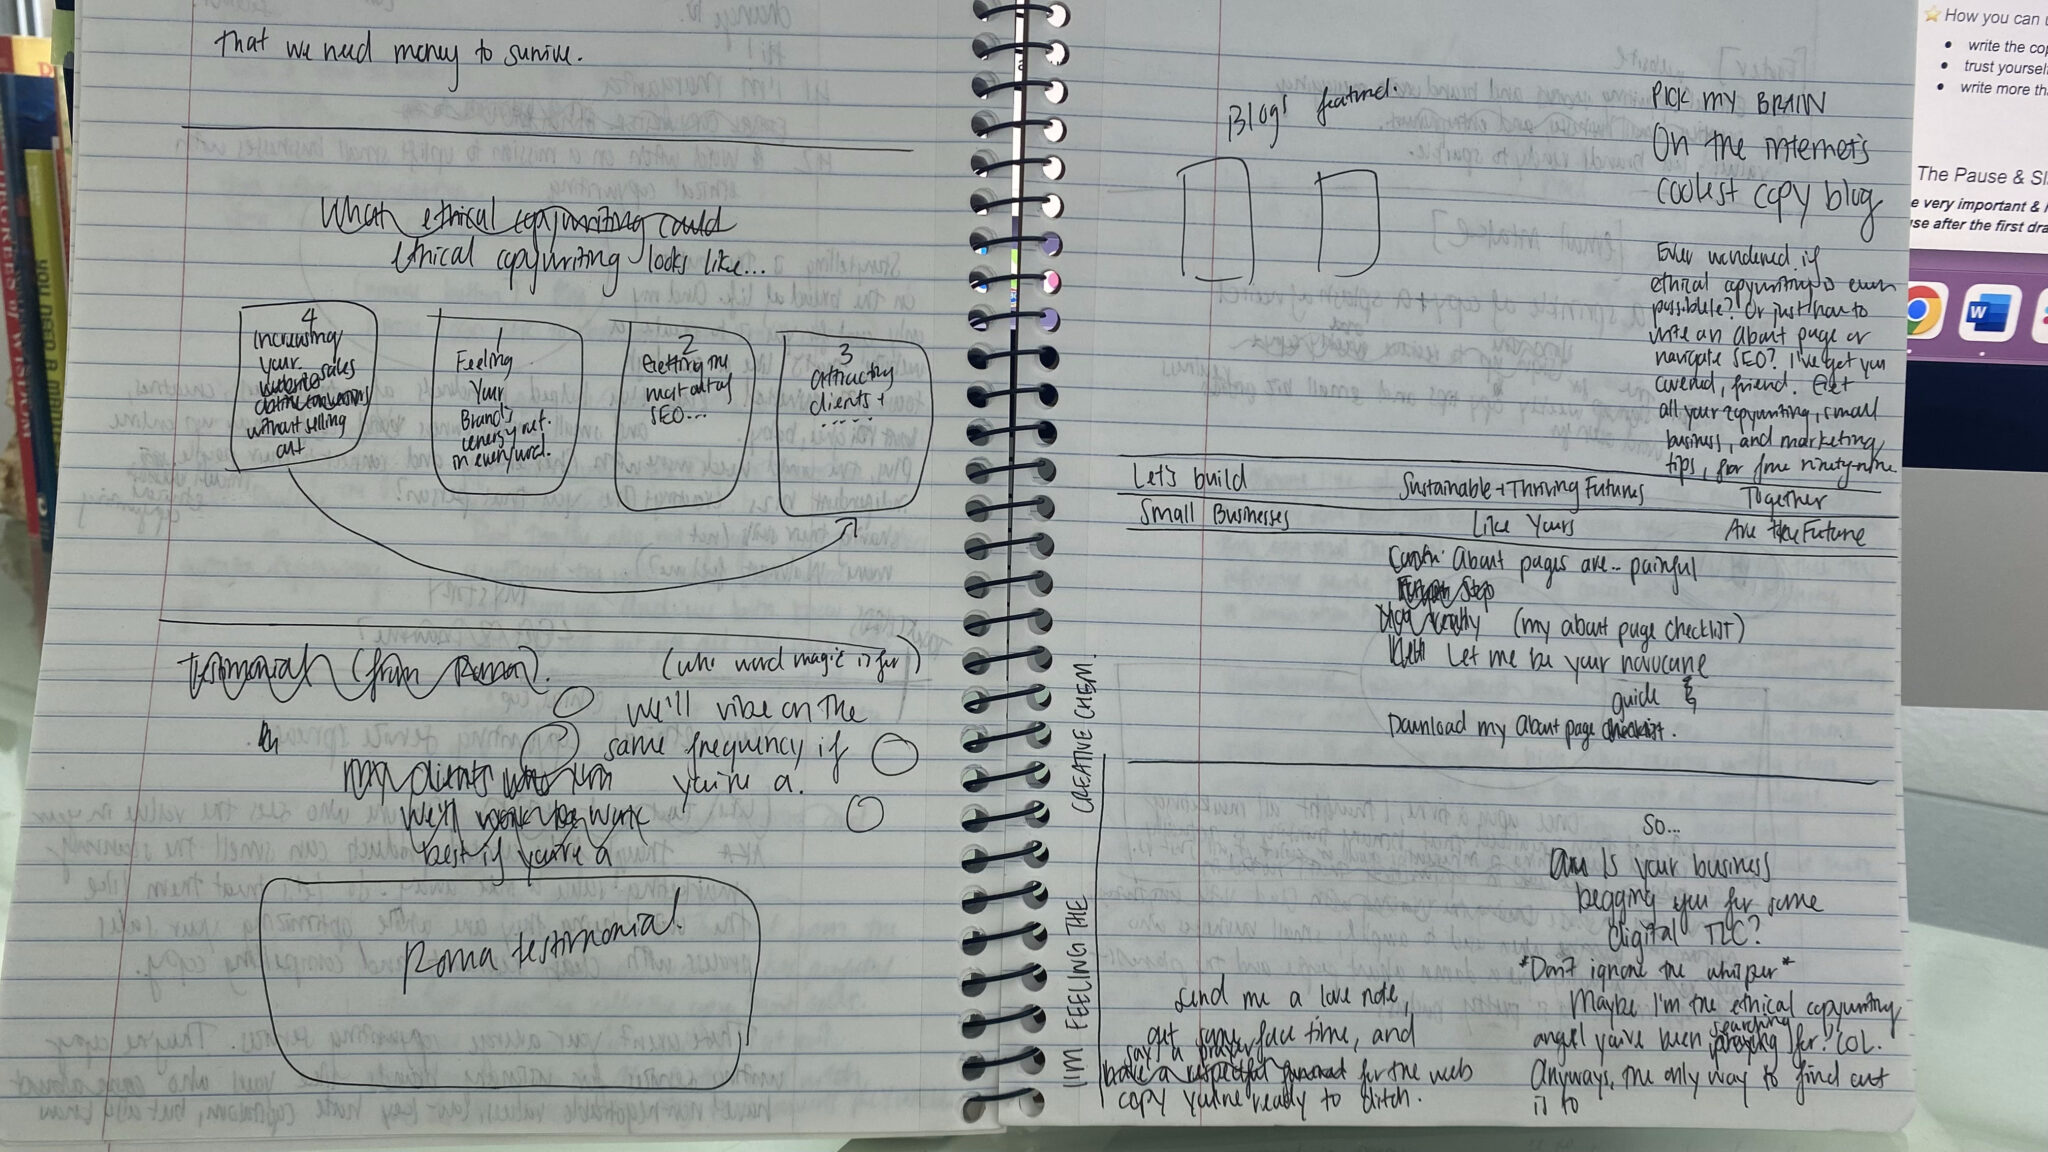 that we need money to survive.
What ethical copywriting could
ethical copywriting looks like...
4
Increasing
your
website sales
without selling
out
1
Feeling
Your
Brand's
energy
in every word.
2
Getting the
most out of
SEO...
3
attracting
clients +
....
testimonial (from Roma).
(who word magic is for)
we'll vibe on the
same frequency if
you're a.
my clients who
We'll work
best if you're a
Roma testimonial.
Blogs featured.
PICK MY BRAIN
On the internet's
coolest copy blog
Ever wondered if
ethical copywriting is even
possible? Or just how to
write an about page or
navigate SEO? I've got you
covered, friend. Get
all your copywriting, small
business, and marketing
tips, for free ninety-nine
Let's build Sustainable + Thriving Futures Together
Small Businesses Like Yours Are the Future
About pages are... painful
Step
really (my about page checklist)
Let me be your novocane
guide &
Download my About page checklist.
I'M FEELING THE CREATIVE CHEM.
So...
Is your business
begging you for some
digital TLC?
*Don't ignore the whisper*
Maybe I'm the ethical copywriting
searching
angel you've been for? LOL.
Anyways, the only way to find out
is to
send me a love note,
get some face time, and
say a prayer
have a respectful funeral for the web
copy you're ready to ditch.
⭐ How you can u
• write the cop
• trust yourself
• write more tha
The Pause & Sl
e very important &
use after the first dra
W
YOU NEED A
BROKERS OF WISDOM